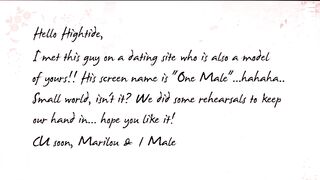 Hello Hightide,
I met this guy on a dating site who is also a model
of yours!! His screen name is "One Male"...hahaha..
Small world, isn't it? We did some rehearsals to keep
our hand in... hope you like it!
CU soon, Marilou & 1 Male